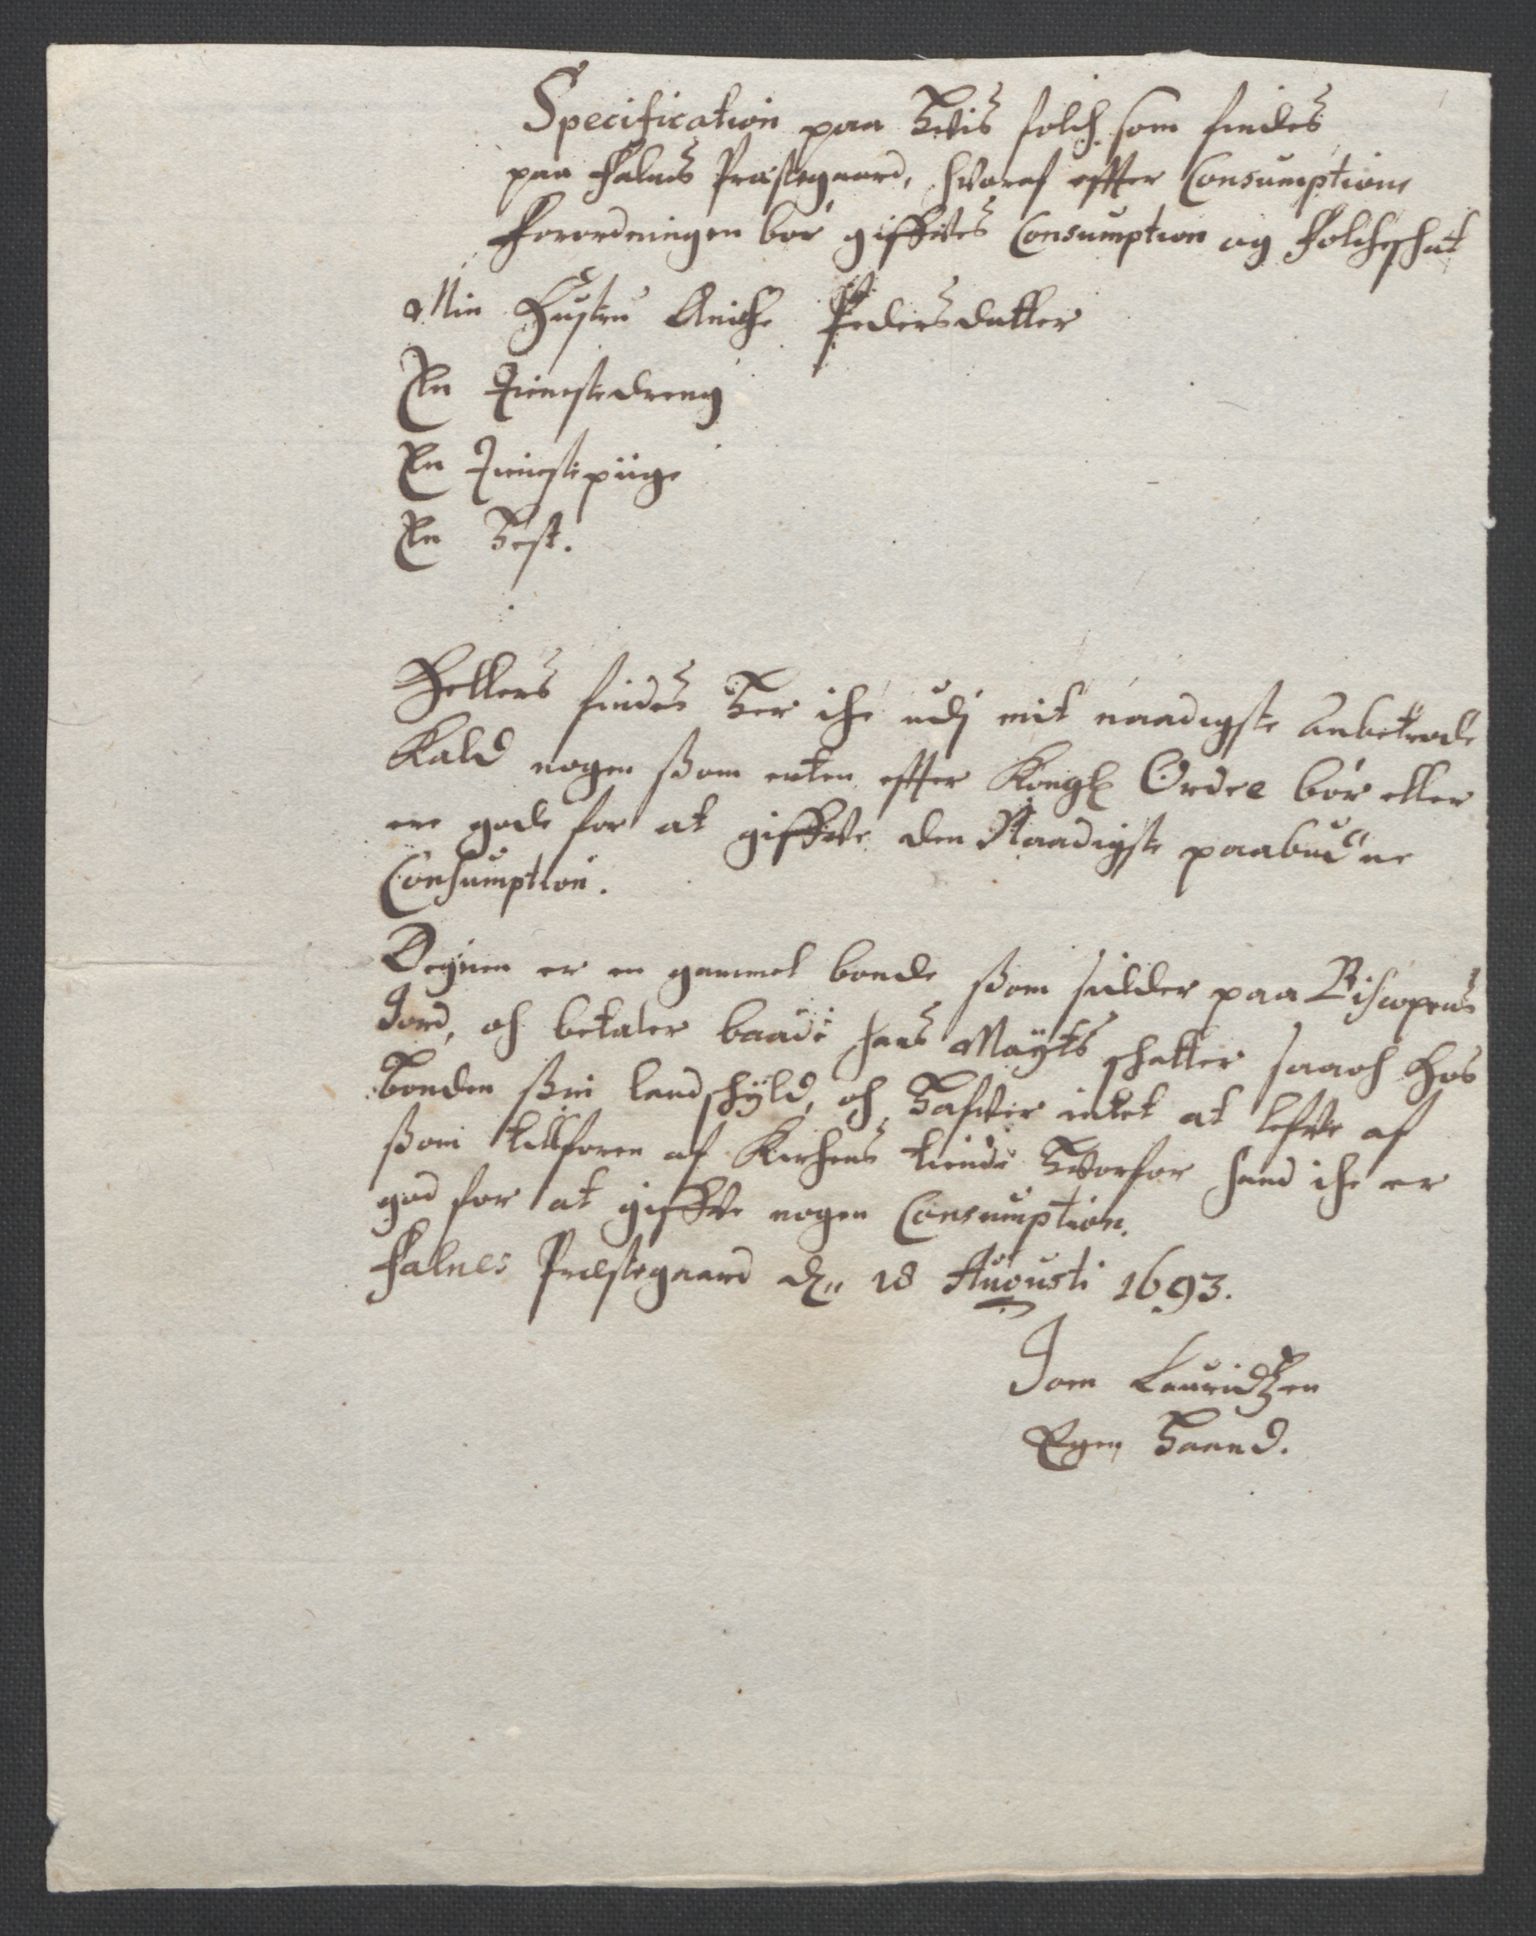 Specification paa Hvis folch som findes
paa Falnes Præstegaard, hvoraf effter Consumptions
Forordningen bør giffves Consumption og Folcheschat
Min Hustru Aniche Pedersdatter
En Tienistedreng
En Tienistepiige
En Hest.
Hellers findes Her iche udj mit naadigste anbetrode
Kald nogen ßom enten effter Kongl Ordre bør eller
ere gode for at giffve den Naadigste paabudne
Consumption.
Degnen er en gammel bonde ßom sidder paa Biscopens
Jord, och betaler baade hans Maÿts schatter saa och Hos
bonden ßin landschÿld, och Hafver intet at lefve af
ßom tillforen af Kirchens tiende Hvorfor hand iche er
god for at giffve nogen Consumption.
Falnes Præstegaard dn 18 Augusti 1693.
Joen Lauridtzen
Egen Haand.